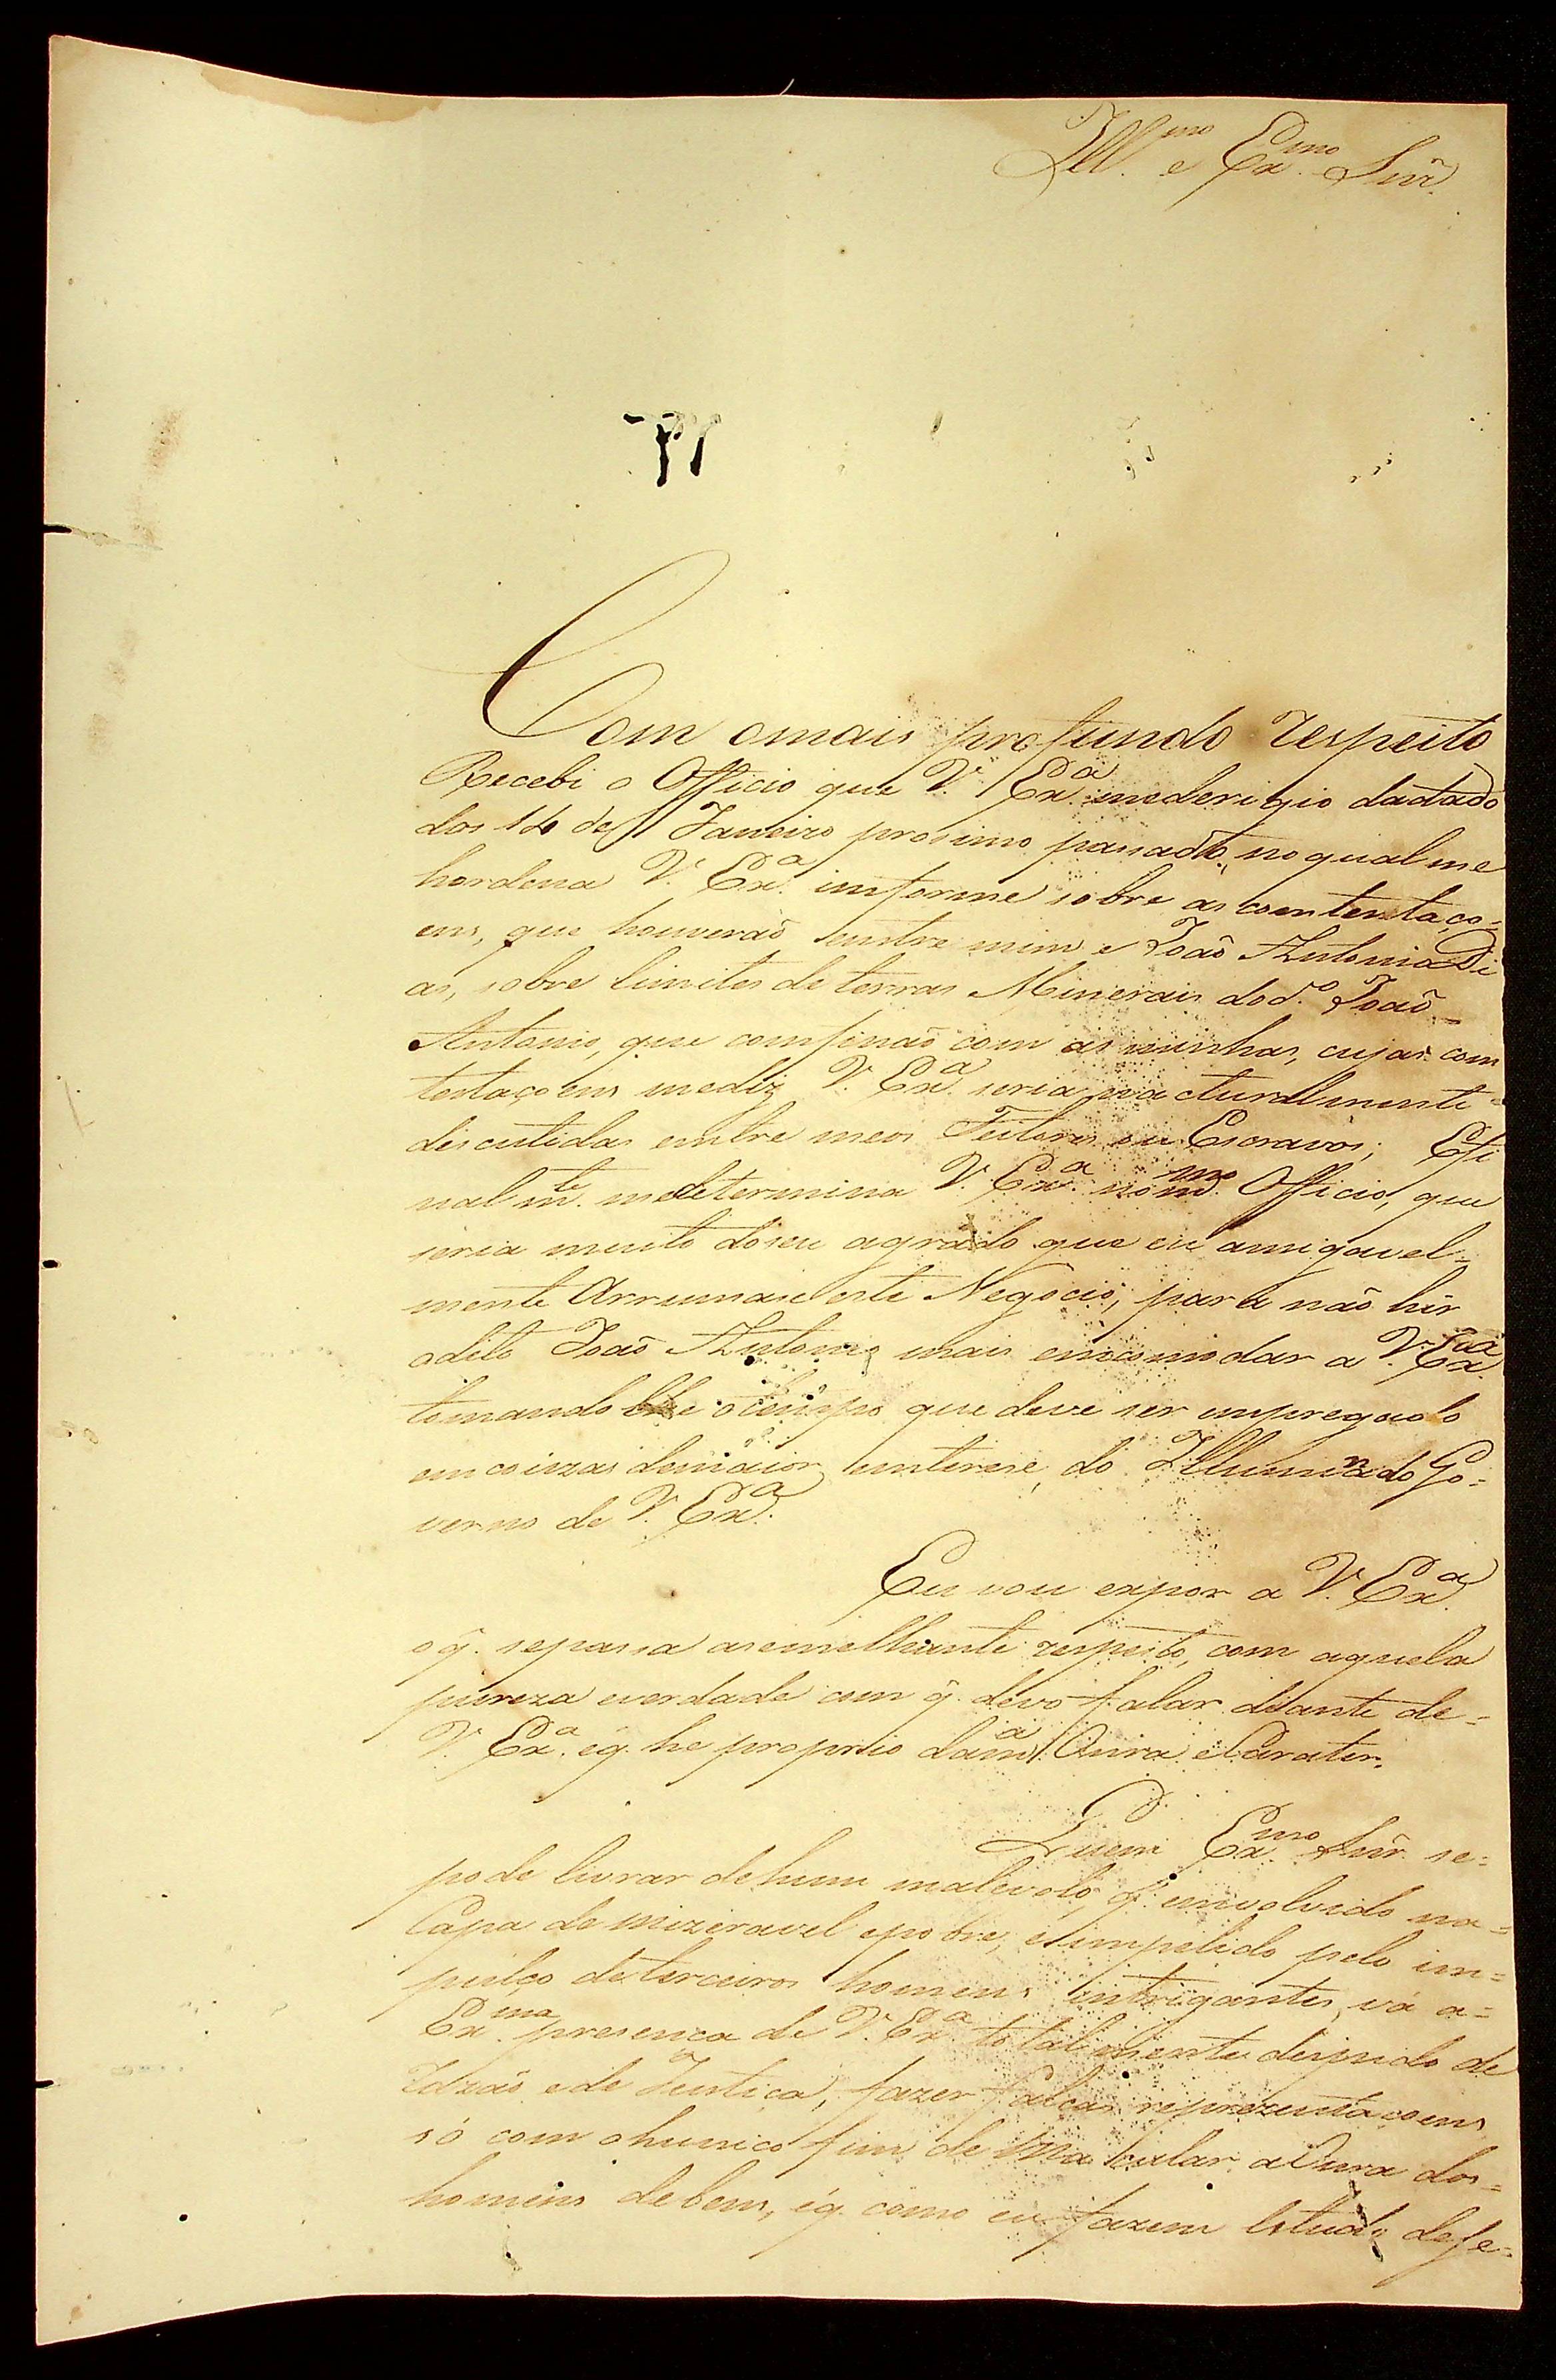 Ill.mo e Ex.mo Snr̃.
Com omais profundo respeito
Recebi o Officio que V. Ex.a mederigio dactado
dos 14 de Janeiro prosimo passado, noqual me
hordena V. Ex.a imforme sobre as contestaço=
ens, que houverão entre mim e João Antonio Di
as, sobre limites de terras Minerais dod.o João
Antonio, que comfinão com as minhas, cujas com
testaçoens mediz V. Ex.a seria nacturalmente
descutidas emtre meos Feitores ou Escravos; Efi
nalm.te medetermina V. Ex.a nom.mo Officio, que
seria muito doseu agrado que eu amigavel=
mente Arrumase este Negocio; para não hir
odito João Antonio mais emcomodar a V. Ex.a
tomandolhe otempo que deve ser empregado
em coizas demaior emterese, do Illuminado Go=
verno de V. Ex.a
Eu vou expor a V. Ex.a
oq̃. sepassa asemelhante respeito, com aquela
pureza everdade com q̃. devo falar diante de=
V. Ex.a eq. he proprio dam.a Onra eCarater.
Quem Ex.mo Snr̃. se=
pode livrar dehum malevolo, q. emvolvido na=
Capa de mizeravel epobre, eimpelido pelo im=
pulço deterceiros homens intrigantes, vá a=
Ex.ma presença de V. Ex.a totalmente despido de
razão ede Justiça, fazer falças reprezentaçoens
só com ohunico fim de Macular aOnra dos=
homens debem, éq. como eu fazem letudo defe=